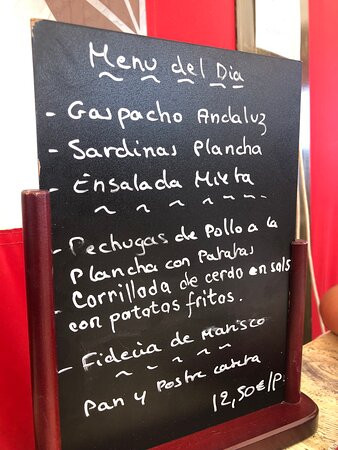 Menu del Dia
- Gaspacho Andaluz
- Sardinas Plancha
- Ensalada Mixta
~ ~ ~ ~ ~ ~
- Pechugas de Pollo a la
Plancha con Patatas
- Carrillada de cerdo en sals
con patatas fritas.
- Fideua de Marisco
~ ~ ~ ~ ~
Pan y Postre casera
12,50€/P.